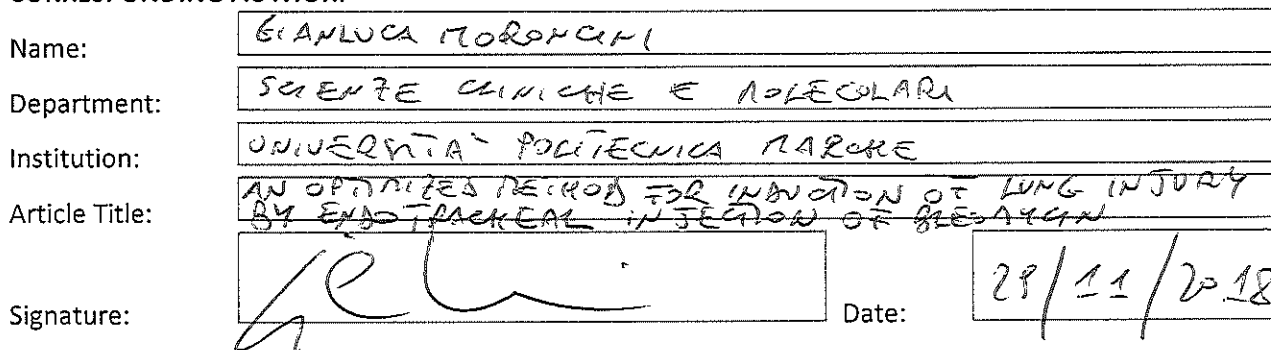 CORRESPONDING AUTHOR:
Name: GIANLUCA MORONCINI
Department: SCIENZE CLINICHE E MOLECOLARI
Institution: UNIVERSITA` POLITECNICA MARCHE
Article Title: AN OPTIMIZED METHOD FOR INDUCTION OF LUNG INJURY
BY ENDOTRACHEAL INJECTION OF BLEOMYCIN
Signature: Date: 29/11/2018